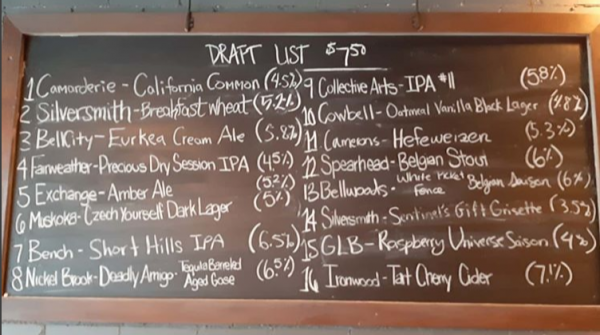 DRAFT LIST $7.50
1 Camorderie - California Common (4.5%)
2 Silversmith - Breakfast Wheat (5.2%)
3 BellCity - Eurkea Cream Ale (5.8%)
4 Farweather - Precious Dry Session IPA (4.5%)
5 Exchange - Amber Ale (5.2%)
6 Muskoka - Czech Yourself Dark Lager (5%)
7 Bench - Short Hills IPA (6.5%)
8 Nickel Brook - Deadly Amigo - Tequila Barreled Aged Gose (6.5%)
9 Collective Arts - IPA #11 (5.8%)
10 Cowbell - Oatmeal Vanilla Black Lager (4.8%)
11 Camerons - Hefeweizen (5.3%)
12 Spearhead - Belgian Stout (6%)
13 Bellwoods - White Picket Fence Belgian Saison (6%)
14 Silversmith - Sentinel's Gift Grisette (3.5%)
15 GLB - Raspberry Universe Saison (4%)
16 Ironwood - Tart Cherry Cider (7.1%)